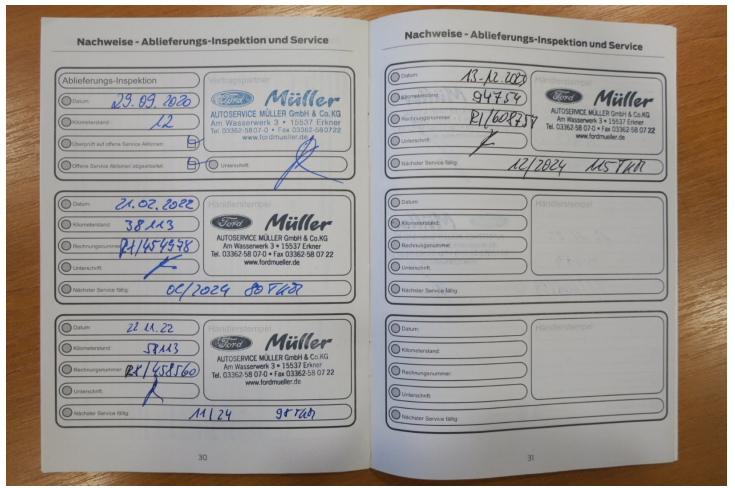 Nachweise - Ablieferungs-Inspektion und Service
Ablieferungs-Inspektion
Vertragspartner
Datum: 29.09.2020
Kilometerstand: 12
Überprüft auf offene Service Aktionen:
Offene Service Aktionen abgearbeitet:
Unterschrift:
Ford Müller
AUTOSERVICE MÜLLER GmbH & Co.KG
Am Wasserwerk 3 • 15537 Erkner
Tel. 03362-58 07-0 • Fax 03362-58 07 22
www.fordmueller.de
Datum: 21.02.2022
Kilometerstand: 38113
Rechnungsnummer: R1/454978
Unterschrift:
Nächster Service fällig: 02/2024 80 TKM
Händlerstempel
Ford Müller
AUTOSERVICE MÜLLER GmbH & Co.KG
Am Wasserwerk 3 • 15537 Erkner
Tel. 03362-58 07-0 • Fax 03362-58 07 22
www.fordmueller.de
Datum: 22.11.22
Kilometerstand: 58113
Rechnungsnummer: R1/458560
Unterschrift:
Nächster Service fällig: 11/24 98 TKM
Händlerstempel
Ford Müller
AUTOSERVICE MÜLLER GmbH & Co.KG
Am Wasserwerk 3 • 15537 Erkner
Tel. 03362-58 07-0 • Fax 03362-58 07 22
www.fordmueller.de
30
Nachweise - Ablieferungs-Inspektion und Service
Datum: 13.12.2023
Kilometerstand: 94754
Rechnungsnummer: R1/608757
Unterschrift:
Nächster Service fällig: 12/2024 115 TKM
Händlerstempel
Ford Müller
AUTOSERVICE MÜLLER GmbH & Co.KG
Am Wasserwerk 3 • 15537 Erkner
Tel. 03362-58 07-0 • Fax 03362-58 07 22
www.fordmueller.de
Datum:
Kilometerstand:
Rechnungsnummer:
Unterschrift:
Nächster Service fällig:
Händlerstempel
Datum:
Kilometerstand:
Rechnungsnummer:
Unterschrift:
Nächster Service fällig:
Händlerstempel
31